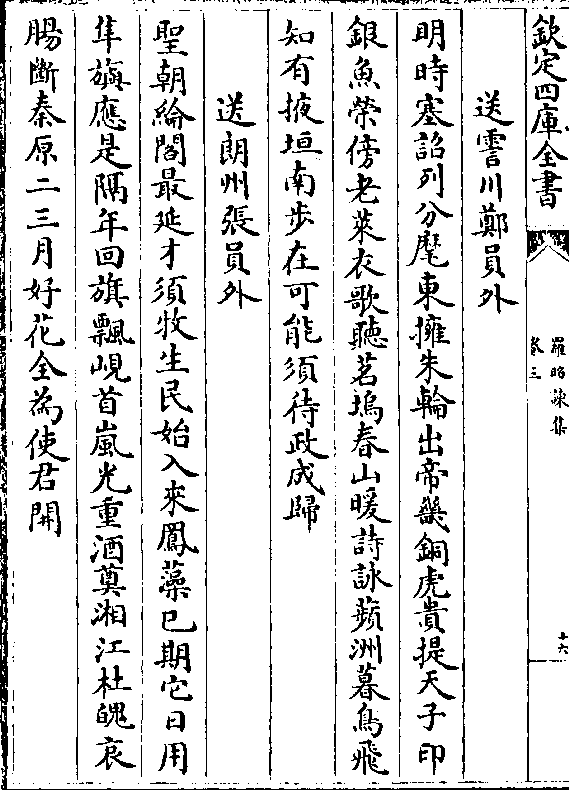 欽定四庫全書
羅昭諫集
卷三
十六
送霅川鄭員外
明時塞詔列分麾東擁朱輪出帝畿銅虎貴提天子印
銀魚榮傍老萊衣歌聽茗塢春山暖詩詠蘋洲暮鳥飛
知有掖垣南步在可能須待政成歸
送朗州張員外
聖朝綸閣最延才須牧生民始入來鳳藻已期它日用
隼旟應是隔年回旗飄峴首嵐光重酒奠湘江杜魄哀
腸斷秦原二三月好花全為使君開